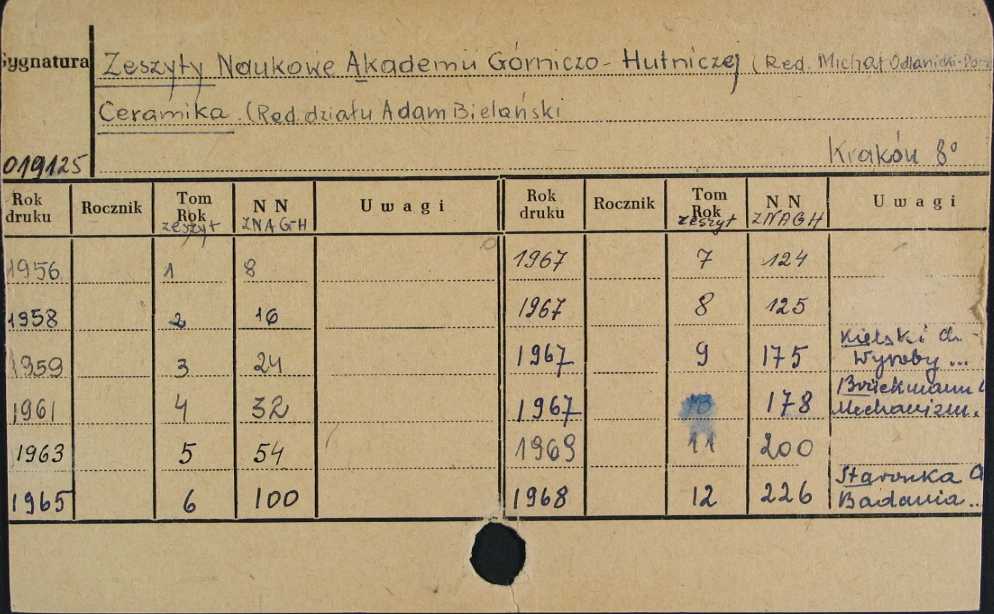 Sygnatura Zeszyty Naukowe Akademii Górniczo-Hutniczej (Red. Michał Odlanicki-
Ceramika. (Red. działu Adam Bielański
019125 Kraków 8°
Rok druku Rocznik Tom Rok zeszyt N N ZNAG-H Uwagi Rok druku Rocznik Tom Rok zeszyt N N ZNAGH Uwagi
1956 1 8 1967 7 124
1958 2 16 1967 8 125
1959 3 24 1967 9 175 Kielski Wyroby ...
1961 4 32 1967 10 178 Brückmann Mechanizm.
1963 5 54 1969 11 200
1965 6 100 1968 12 226 Staronka Badania ...